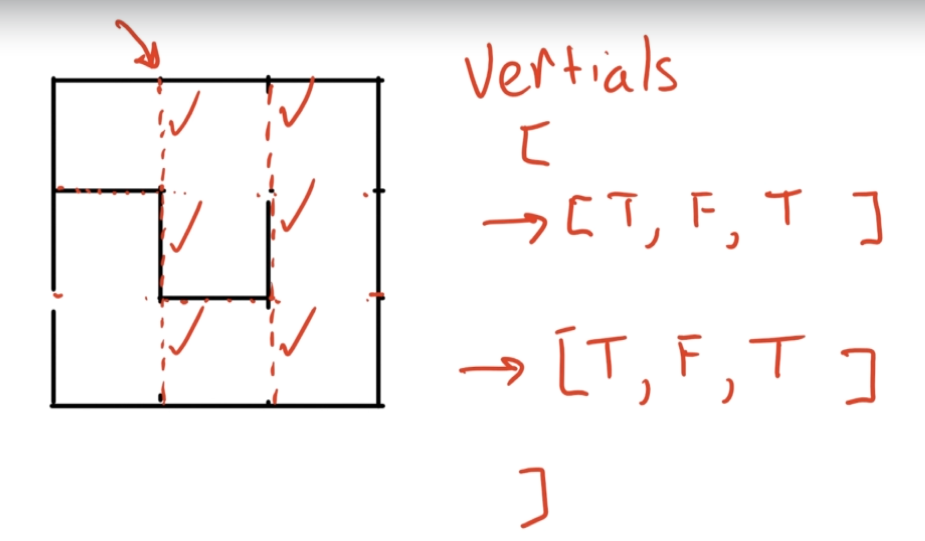 Vertials
[
→ [ T, F, T ]
→ [ T, F, T ]
]